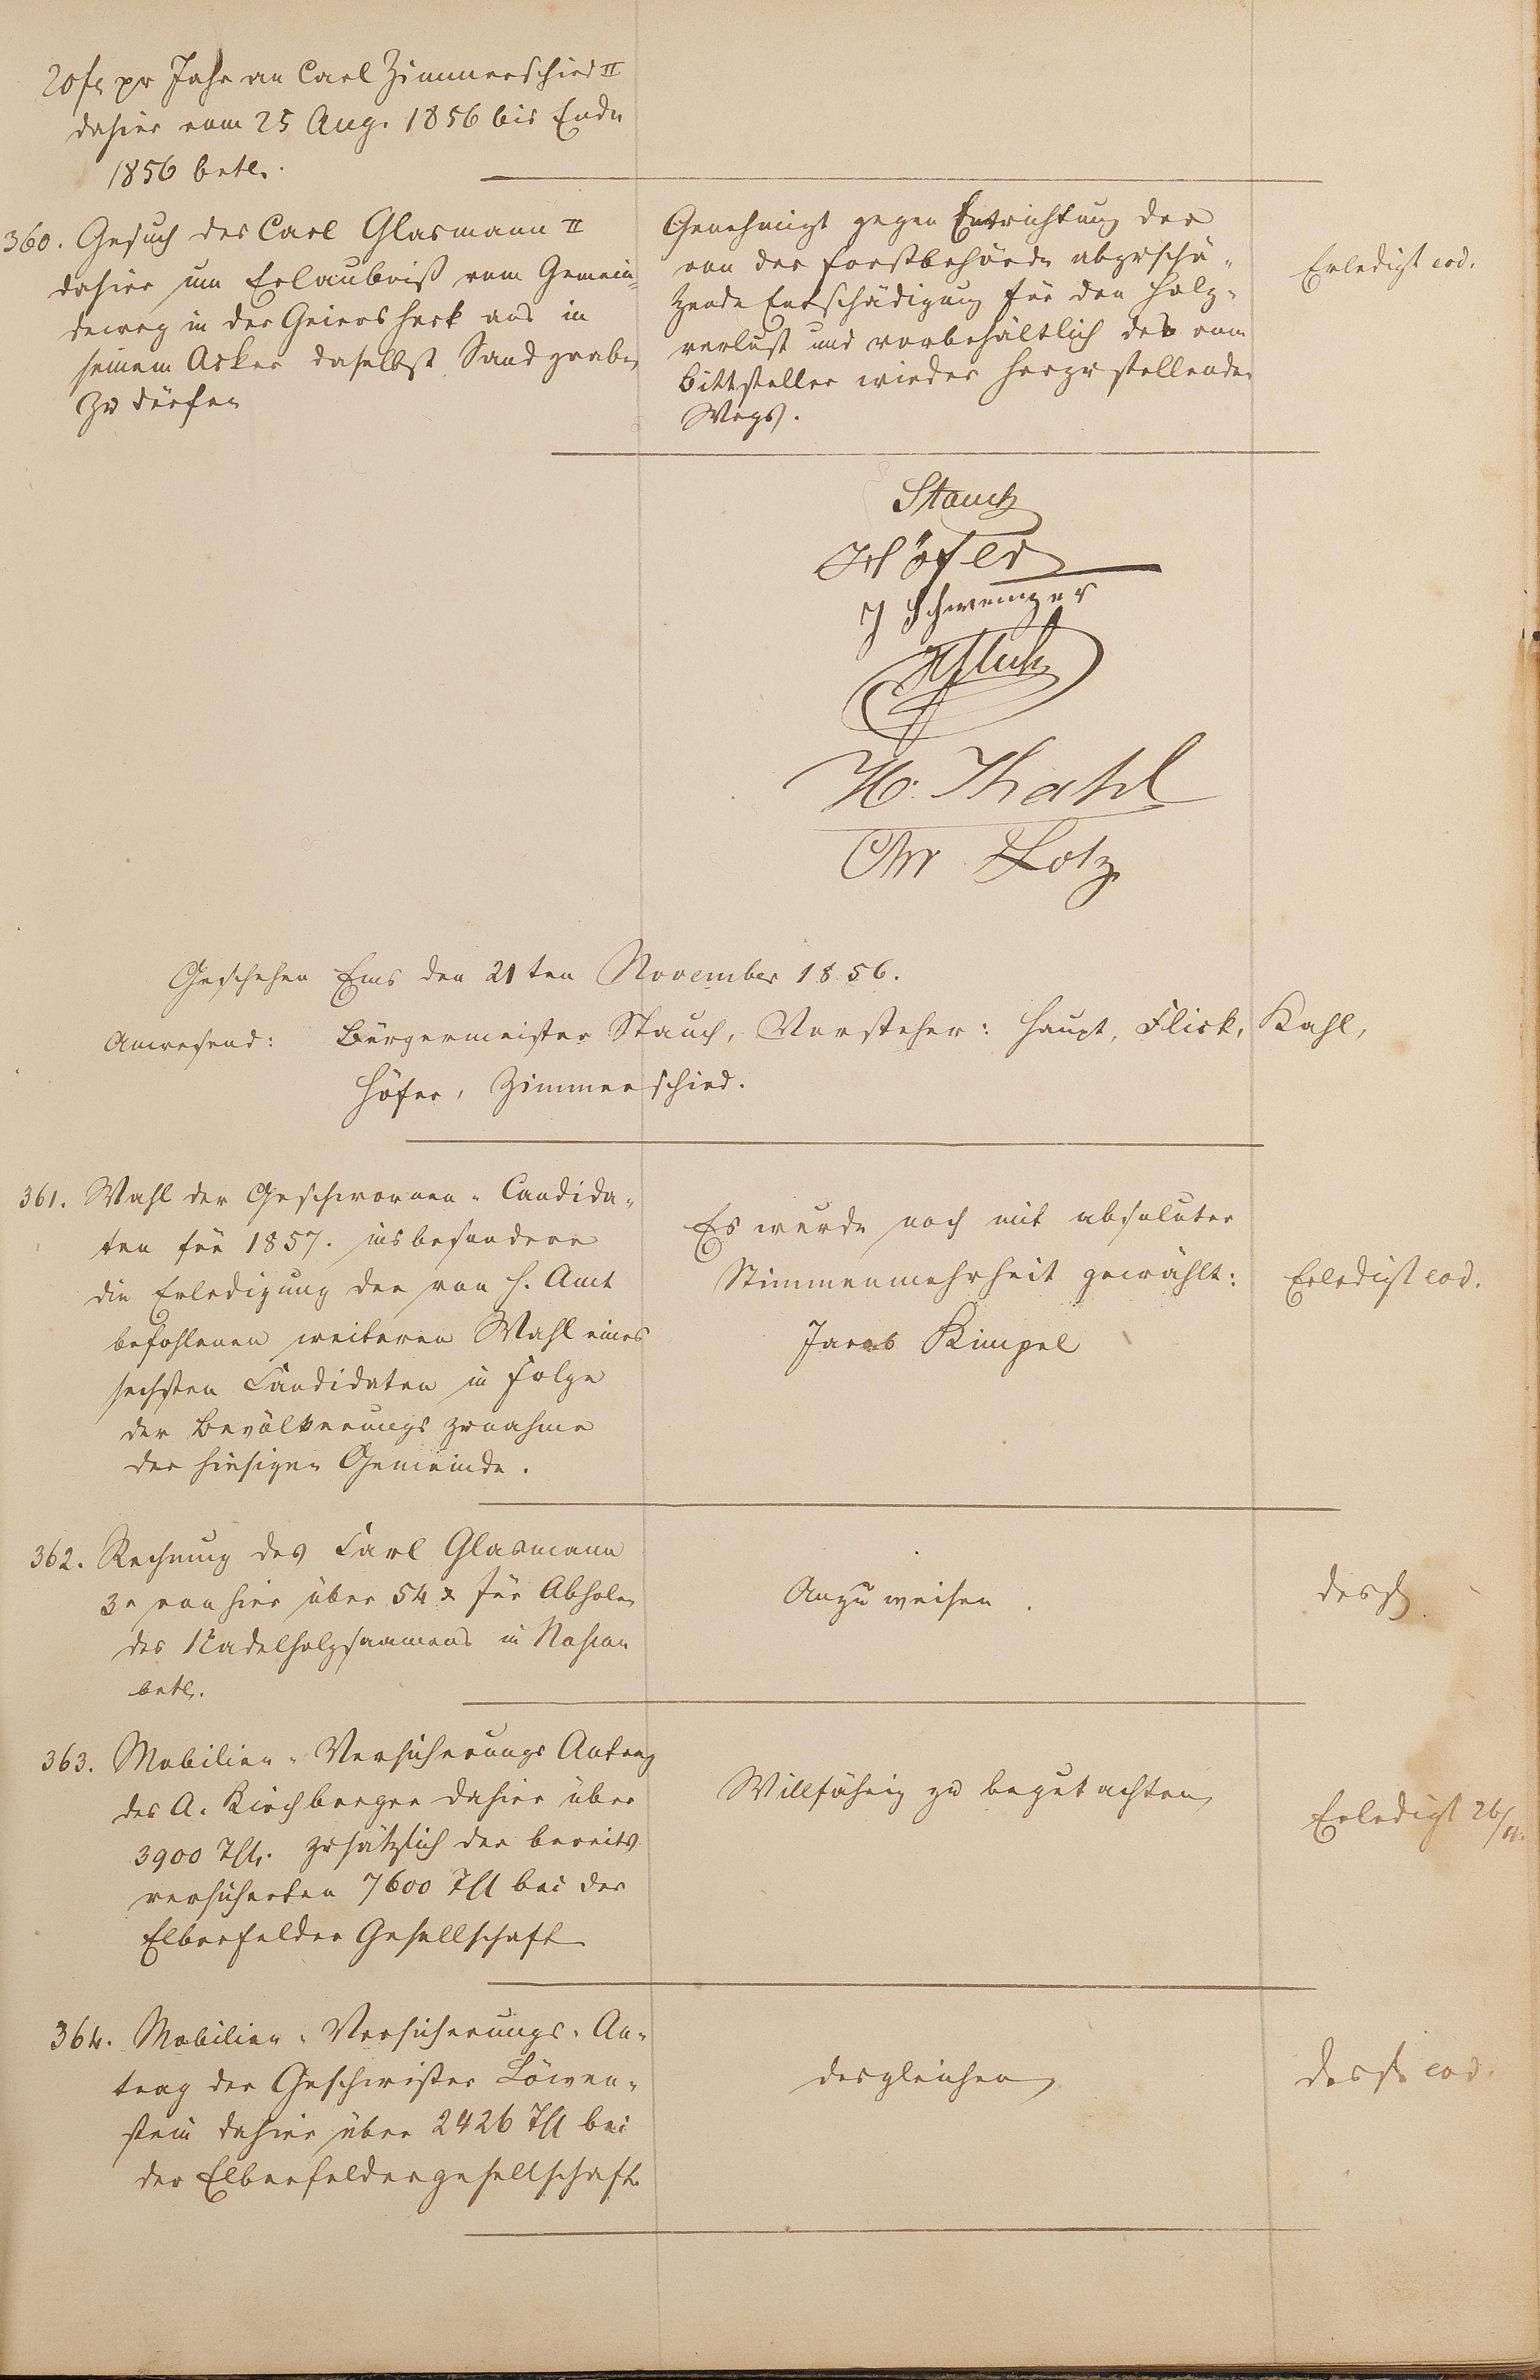 20 fl pr Jahr an Carl Zimmerschied II
dahier vom 25 Aug. 1856 bis Ende
1856 betr.
360. Gesuch des Carl Glasmann II
dahier um Erlaubniß vom Gemein-
deweg in der Geiersheck aus in
seinem Acker daselbst Sand graben
zu dürfen
Genehmigt gegen Entrichtung der
von der Forstbehörde abzuschä-
tzende Entschädigung für den Holz-
verlust und vorbehältlich des vom
Bittsteller wieder herzustellenden
Wegs.
Erledigt eod.
Stauch
Höfer
J Schwenzer
Flick
H. Kahl
Chr Lotz
Geschehen Ems den 21ten November 1856.
Anwesend: Bürgermeister Stauch, Vorsteher: Haupt, Flick, Kahl,
Höfer, Zimmerschied.
361. Wahl der Geschwornen-Candida-
ten für 1857. insbesondere
die Erledigung der von H. Amt
befohlenen weiteren Wahl eines
sechsten Candidaten in Folge
der Bevölkerungs zunahme
der hiesigen Gemeinde.
Es wurde noch mit absoluter
Stimmenmehrheit gewählt:
Jacob Kimpel
Erledigt eod.
362. Rechnung des Carl Glasmann
3r von hier über 54 x für Abholen
des Nadelholzsaamens in Nassau
betr.
Anzuweisen.
desgl
363. Mobilien-Versicherungs Antrag
des A. Kirchberger dahier über
3900 Thlr. zusätzlich der bereits
versicherten 7600 Thl bei der
Elberfelder Gesellschaft
Willfährig zu begutachten
Erledigt 26/11.
364. Mobilien-Versicherungs-An-
trag der Geschwister Löwen-
stein dahier über 2426 Thl bei
der Elberfeldergesellschaft.
desgleichen
desgl eod.